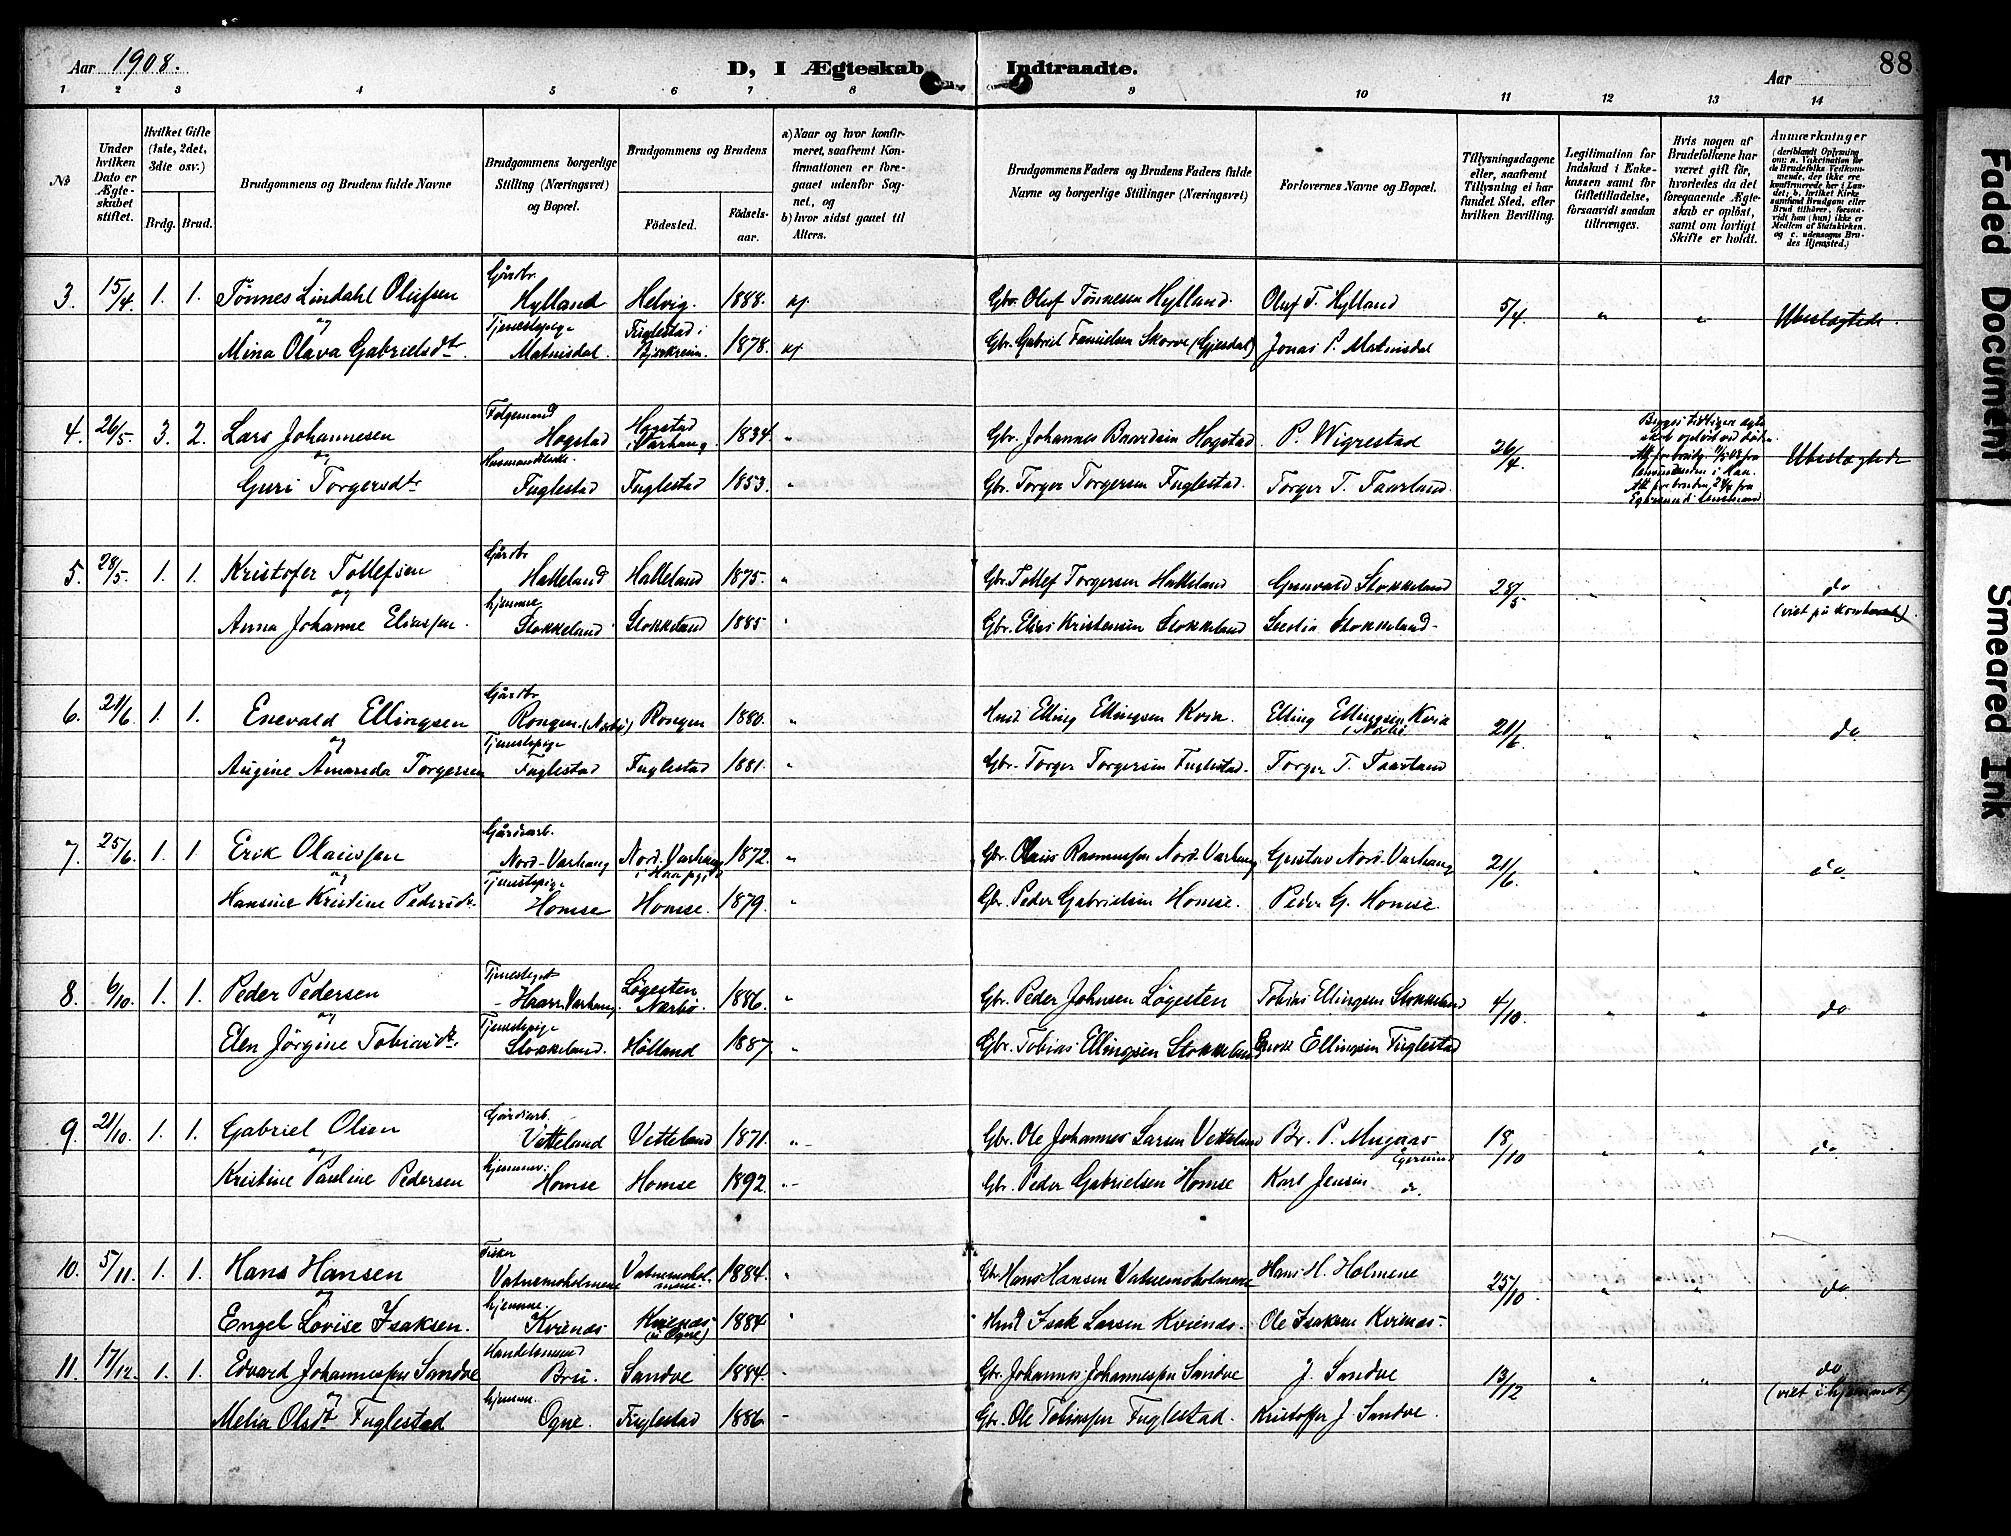 Aar 1908. D, I Ægteskab Indtraadte. Aar 88
1 2 3 4 5 6 7 8 9 10 11 12 13 14
No
Under hvilken Dato er Ægteskabet stiftet.
Hvilket Gifte (1ste, 2det, 3die osv.)
Brdg. Brud.
Brudgommens og Brudens fulde Navne
Brudgommens borgerlige Stilling (Næringsvei) og Bopæl.
Brudgommens og Brudens
Fødested.
Fødselsaar.
a) Naar og hvor konfirmeret, saafremt Konfirmationen er foregaaet udenfor Sognet, og
b) hvor sidst gaaet til Alters.
Brudgommens Faders og Brudens Faders fulde Navne og borgerlige Stillinger (Næringsvei)
Forlovernes Navne og Bopæl.
Tillysningsdagene eller, saafremt Tillysning ei har fundet Sted, efter hvilken Bevilling.
Legitimation for Indskud i Enkekassen samt for Giftetilladelse, forsaavidt saadan tiltrænges.
Hvis nogen af Brudefolkene har været gift før, hvorledes da det foregaaende Ægteskab er opløst, samt om lovligt Skifte er holdt.
Anmærkninger (deriblandt Oplysning om: a. Vakcination for de Brudefolks Vedkommende, der ikke ere konfirmerede her i Landet; b. hvilket Kirkesamfund Brudgom eller Brud tilhører, forsaavidt han (hun) ikke er Medlem af Statskirken, og c. udensogns Brudes Hjemsted.)
3. 15/4. 1. 1. Tønnes Lindahl Olufsen Gårdbr. Hylland Helvig. 1888. Gbr. Oluf Tønnesen Hylland. Oluf T. Hylland 5/4. " " Ubeslægtede.
og
Mina Olava Gabrielsdtr Tjenestepige Matnisdal. Fuglestad i Bjerkreim. 1878. Gbr. Gabriel Tanielsen Skorve (Gjesdal) Jonas P. Matnisdal
4. 26/5. 3. 2. Lars Johannesen Følgemand Hogstad Hogstad i Varhaug 1834. " Gbr. Johannes Baardsen Hogstad. P. Wigrestad 26/4. Ubeslægtede
og
Guri Torgersdtr Fuglestad Fuglestad 1853. " Gbr. Torger Torgersen Fuglestad. Torger T. Taarland.
5. 28/5. 1. 1. Kristofer Tollefsen Gårdbr Hatteland Hatteland 1875. " Gbr. Tollef Torgersen Hatteland Gunvald Stokkeland 28/5 " " do
og (viet på kontoret)
Anna Johanne Eliassen. hjemme Stokkeland Stokkeland 1885. " Gbr. Elias Kristensen Stokkeland Stokkeland.
6. 21/6. 1. 1. Enevald Ellingsen Gårdbr Rongen. (Nærbø) Rongen 1880. " Hmd. Elling Ellingsen Kvia. Elling Ellingsen Kvia i Nærbø 21/6. " " do
og
Augine Amanda Torgersen Tjenestepige Fuglestad Fuglestad 1881. " Gbr. Torger Torgersen Fuglestad. Torger T. Taarland
7. 25/6. 1. 1. Erik Olaussen Gårdsarb. Nord-Varhaug Nord-Varhaug 1872. " Gbr. Olaus Rasmussen Nord-Varhaug Gustav Nord-Varhaug 21/6. " " do.
og
Hansine Kristine Pedersdtr. Tjenestepige Homse Homse. 1879. " Gbr. Peder Gabrielsen Homse. Peder G. Homse.
8. 6/10. 1. 1. Peder Pedersen Varhaug. Løgesten Nærbø. 1886. " Gbr. Peder Johnsen Løgesten Tobias Ellingsen Stokkeland 4/10. " " do
og
Elen Jørgine Tobiasdtr. Tjenestepige Stokkeland. Hølland 1887. " Gbr. Tobias Ellingsen Stokkeland Ellingsen Fuglestad
9. 21/10. 1. 1. Gabriel Olsen Gårdsarb. Vetteland Vetteland 1871. " Gbr. Ole Johannes Larsen Vetteland Br. P. Mugaas Egersund 18/10 " " do
og
Kristine Pauline Pedersen hjemme. Homse Homse 1892. " Gbr. Peder Gabrielsen Homse Karl Jensen do.
10. 5/11. 1. 1. Hans Hansen Fisker Vatnemoholmene Vatnemoholmene. 1884. " Gbr Hans Hansen Vatnemoholmene Hans H. Holmene 25/10. " " do.
og
Engel Lovise Isaksen. hjemme Kvienæs Kvienæs (i Ogne) 1884 " Hmd Isak Larsen Kvienæs. Ole Isaksen Kvienæs
11. 17/12. 1. 1. Edvard Johannessen Sandve Handelsmand Bru. Sandve 1884. " Gbr. Johannes Johannessen Sandve J. Sandve 13/12 " " do
og (viet i hjemmet)
Melia Olsdtr Fuglestad hjemme. Ogne. Fuglestad 1886 Gbr. Ole Tobiassen Fuglestad. Kristoffer J. Sandve.
Faded Document
Smeared Ink